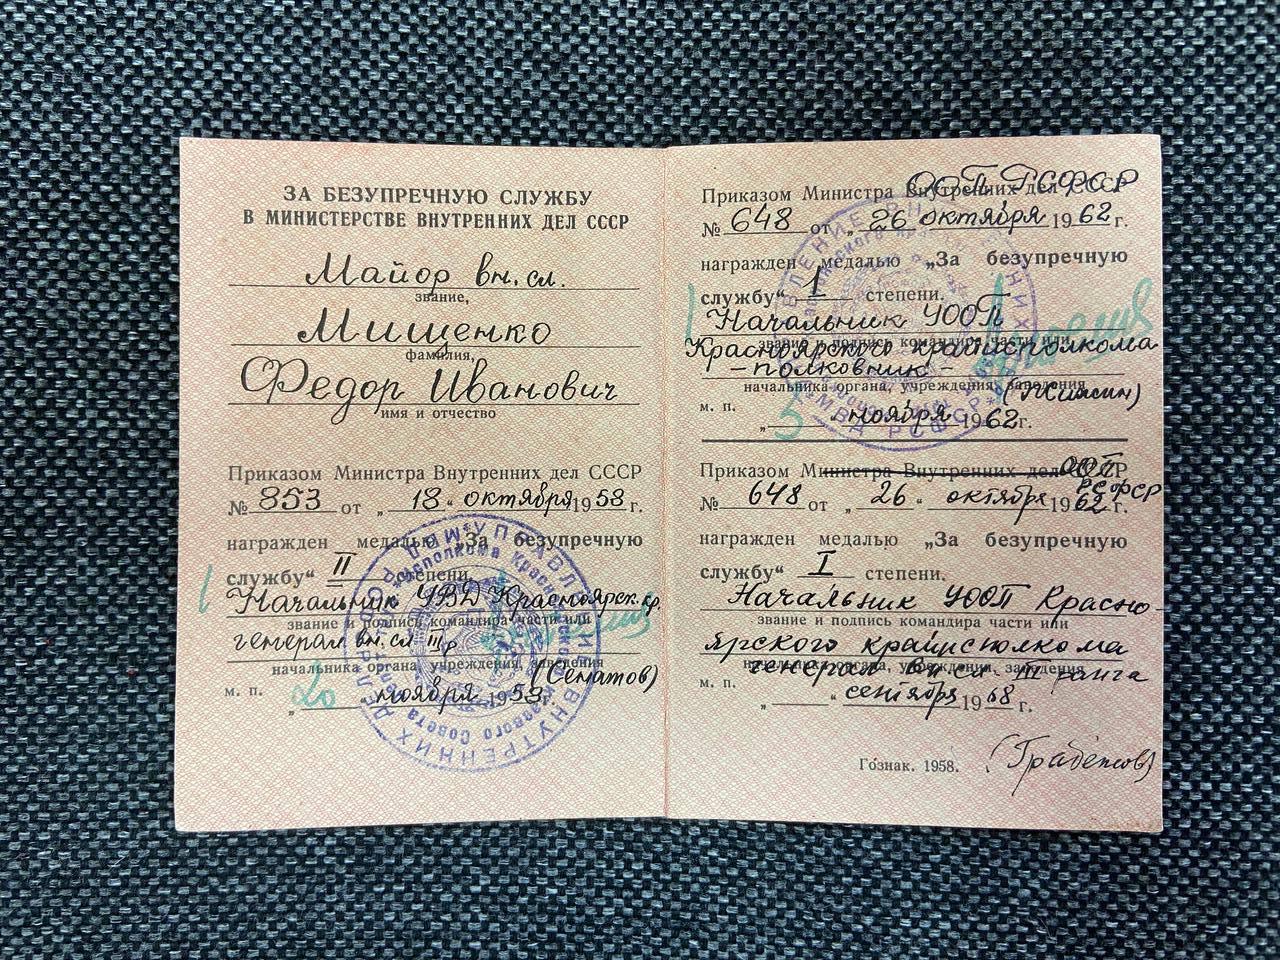 ЗА БЕЗУПРЕЧНУЮ СЛУЖБУ
В МИНИСТЕРСТВЕ ВНУТРЕННИХ ДЕЛ СССР
Майор вн. сл.
звание,
Мищенко
фамилия,
Федор Иванович
имя и отчество
Приказом Министра Внутренних дел СССР
№ 853 от „ 18 “ октября 1958 г.
награжден медалью „За безупречную
службу“ II степени.
Начальник УВД Красноярск. кр.
звание и подпись командира части или
генерал вн. сл. III р
начальника органа, учреждения, заведения
(Сематов)
м. п.
„ 20 ноября 1958 г.
Приказом Министра Внутренних дел СССР
ООП РСФСР
№ 648 от „ 26 октября 1962 г.
награжден медалью „За безупречную
службу“ 1 степени.
Начальник УООП
звание и подпись командира части или
Красноярского крайисполкома
-полковник-
начальника органа, учреждения, заведения
м. п.
„ 5 ноября 1962 г.
Приказом Министра Внутренних дел СССР
ООП
РСФСР
№ 648 от „ 26 “ октября 1962 г.
награжден медалью „За безупречную
службу“ I степени.
Начальник УООП Красно-
звание и подпись командира части или
ярского крайисполкома
начальника органа, учреждения, заведения
генерал вн сл III ранга
м. п.
„ “ сентября 1968 г.
Гознак. 1958.
УПРАВЛЕНИЕ ВНУТРЕННИХ ДЕЛ
МВД РСФСР